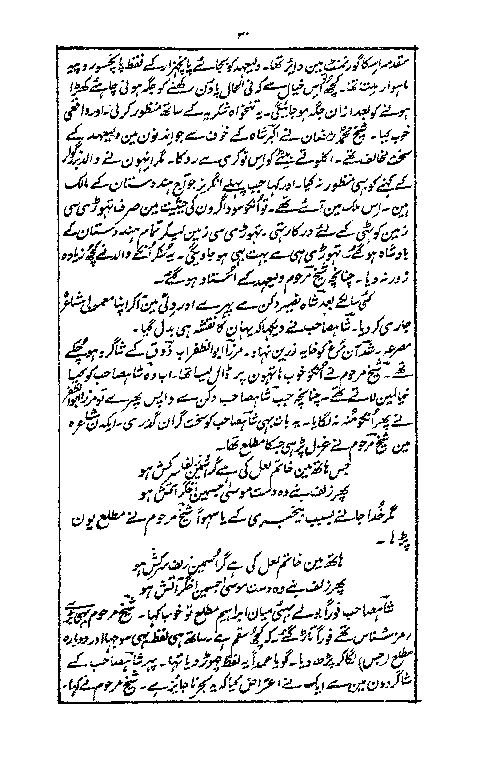 ۳۰
مقدمہ اسکا گورنمنٹ مین دائر تھا۔ ولیعہد کو بجائے پانچہزار کے فقط پانچسو روپیہ
ماہوار ملتا تھا۔ کچھ اس خیال سے کہ فی الحال پاؤن رکھنے کو جگہ ہونی چاہئے کھڑا
ہونے کو بعد ازان جگہ ہو جائیگی۔ یہ تنخواہ شکریہ کے ساتھ منظور کر لی۔ اور واقعی
خوب کیا۔ شیخ محمد رمضان نے اکبر شاہ کے خوف سے جو اندنون مین ولیعہد کے
سخت مخالف تھے۔ اکلوتے بیٹے کو اس نوکری سے روکا۔ مگر انہون نے والد بزرگوار
کے کہنے کو بھی منظور نہ کیا۔ اور کہا جب پہلے انگریز جو آج ہندوستان کے مالک
ہین۔ اس ملک مین آئے تھے۔ تو انکو سوداگرون کی حیثیت مین صرف تھوڑی سی
زمین کوٹھی کے لئے درکار تھی۔ تھوڑی سی زمین لیکر تمام ہندوستان کے
بادشاہ ہو گئے۔ تھوڑی ہی سے بہت ہی ہو جاویگی۔ یہ سنکر انکے والد نے کچھ زیادہ
زور نہ دیا۔ چنانچہ شیخ مرحوم ولیعہد کے استاد ہو گئے۔
کئی سال کے بعد شاہ نصیر دکن سے پھرے اور دلی مین آکر اپنا معمولی مشاعرہ
جاری کر دیا۔ شاہ صاحب نے دیکھا کہ یہان کا نقشہ ہی بدل گیا۔
مصرعہ۔ شد آن مرغ کو خایہ زرین نہاد۔ مرزا ابوالظفر اب ذوق کے شاگرد ہو چکے
تھے۔ شیخ مرحوم نے انکو خوب ہاتھون پر ڈال لیا تھا۔ اب وہ شاہ صاحب کو کیا
خیال مین لاتے تھے۔ چنانچہ جب شاہ صاحب دکن سے واپس پھرے تو مرزا ابوالظفر
نے پھر انکو منہ نہ لگایا۔ یہ بات بھی شاہ صاحب کو سخت گران گذری۔ ایکدن مشاعرہ
مین شیخ مرحوم نے غزل پڑھی جسکا مطلع تھا۔
جس ہاتھ مین خاتم لعل کی ہے گر اسمین زلف سرکش ہو
پھر زلف بنے وہ دست موسیٰ جسمین اخگر آتش ہو
مگر خدا جانے بسبب بیخبری کے یا سہواً شیخ مرحوم نے مطلع یون
پڑھا۔
ہاتھ مین خاتم لعل کی ہے گر اسمین زلف سرکش ہو
پھر زلف بنے وہ دست موسیٰ جسمین اخگر آتش ہو
شاہ صاحب فوراً بولے بھئی میان ابراہیم مطلع تو خوب کہا۔ شیخ مرحوم بھی بڑے
رمز شناس تھے فوراً تاڑ گئے۔ کہ کچھ سقم ہے۔ ساتھ ہی لفظ بھی سوجھا اور دوبارہ
مطلع (جس) لگا کر پڑھ دیا۔ گویا عمداً یہ لفظ چھوڑ دیا تھا۔ پھر شاہ صاحب کے
شاگردون مین سے ایک نے اعتراض کیا کہ یہ بحر ناجائز ہے۔ شیخ مرحوم نے کہا۔